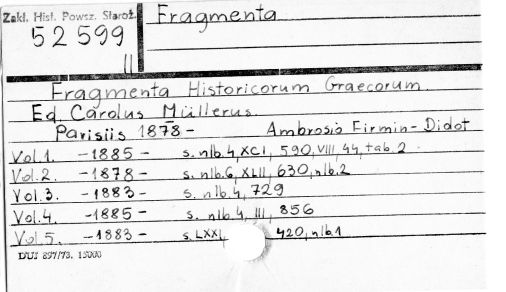 Zakł. Hist. Powsz. Staroż.
Fragmenta
52 599
II
Fragmenta Historicorum Graecorum.
Ed. Carolus Müllerus.
Parisiis 1878- Ambrosio Firmin-Didot
Vol.1. -1885- s. nlb.4, XCI, 590, VIII, 44, tab.2
Vol.2. -1878- s. nlb.6, XLII, 630, nlb.2
Vol.3. -1883- s. nlb.4, 729
Vol.4. -1885- s. nlb.4, III, 856
Vol.5. -1883- s. LXXI, 420, nlb.1
DUJ 897/73. 15000